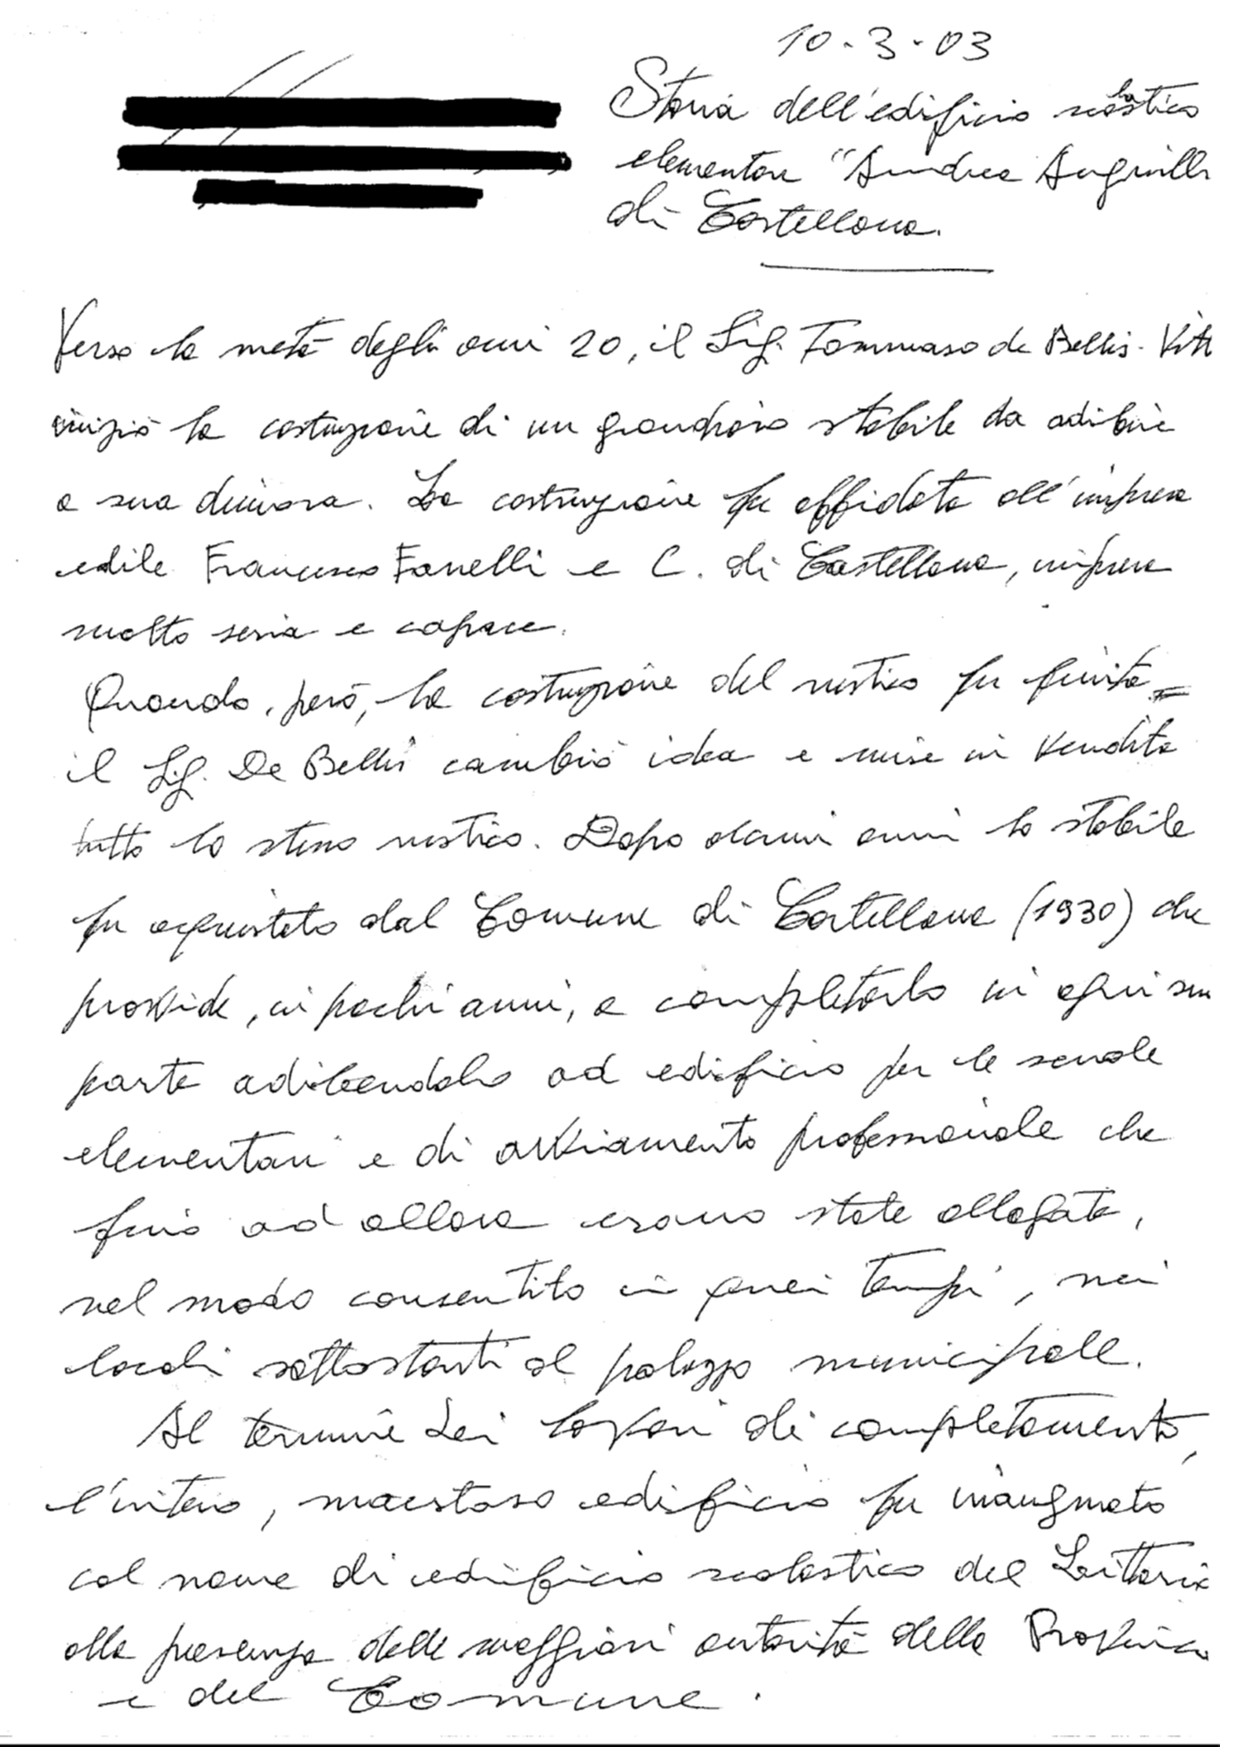 10-3-03
Storia dell'edificio scolastico
elementare "Andrea Anguilla
di Castellana.
Verso la metà degli anni 20, il Sig. Tommaso de Bellis-Vit
iniziò la costruzione di un grandioso stabile da adibire
a sua dimora. La costruzione fu affidata all'impresa
edile Francesco Fanelli e C. di Castellana, impresa
molto seria e capace.
Quando, però, la costruzione del rustico fu finita
il Sig. De Bellis cambiò idea e mise in vendita
tutto lo stesso rustico. Dopo alcuni anni lo stabile
fu acquistato dal Comune di Castellana (1930) che
provvide, in pochi anni, a completarlo in ogni sua
parte adibendolo ad edificio per le scuole
elementari e di avviamento professionale che
fino ad allora erano state allogate,
nel modo consentito in quei tempi, nei
locali sottostanti al palazzo municipale.
Al termine dei lavori di completamento,
l'intero, maestoso edificio fu inaugurato
col nome di edificio scolastico del Littorio
alla presenza delle maggiori autorità della Provincia
e del Comune.